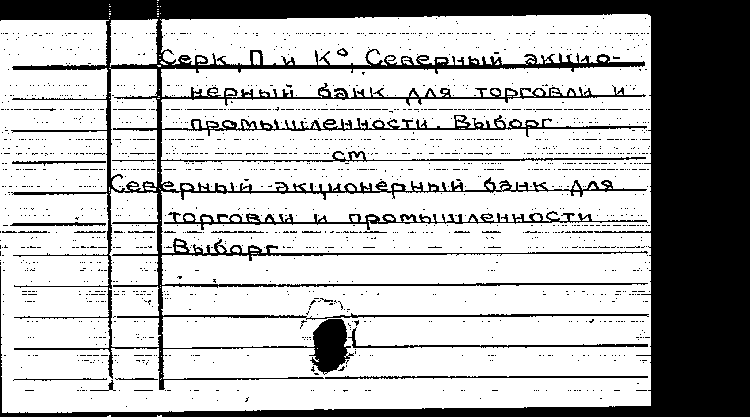 Серк, П. и К°, Северный акцио-
нерный банк для торговли и
промышленности. Выборг
см
Северный акционерный банк для
торговли и промышленности
Выборг